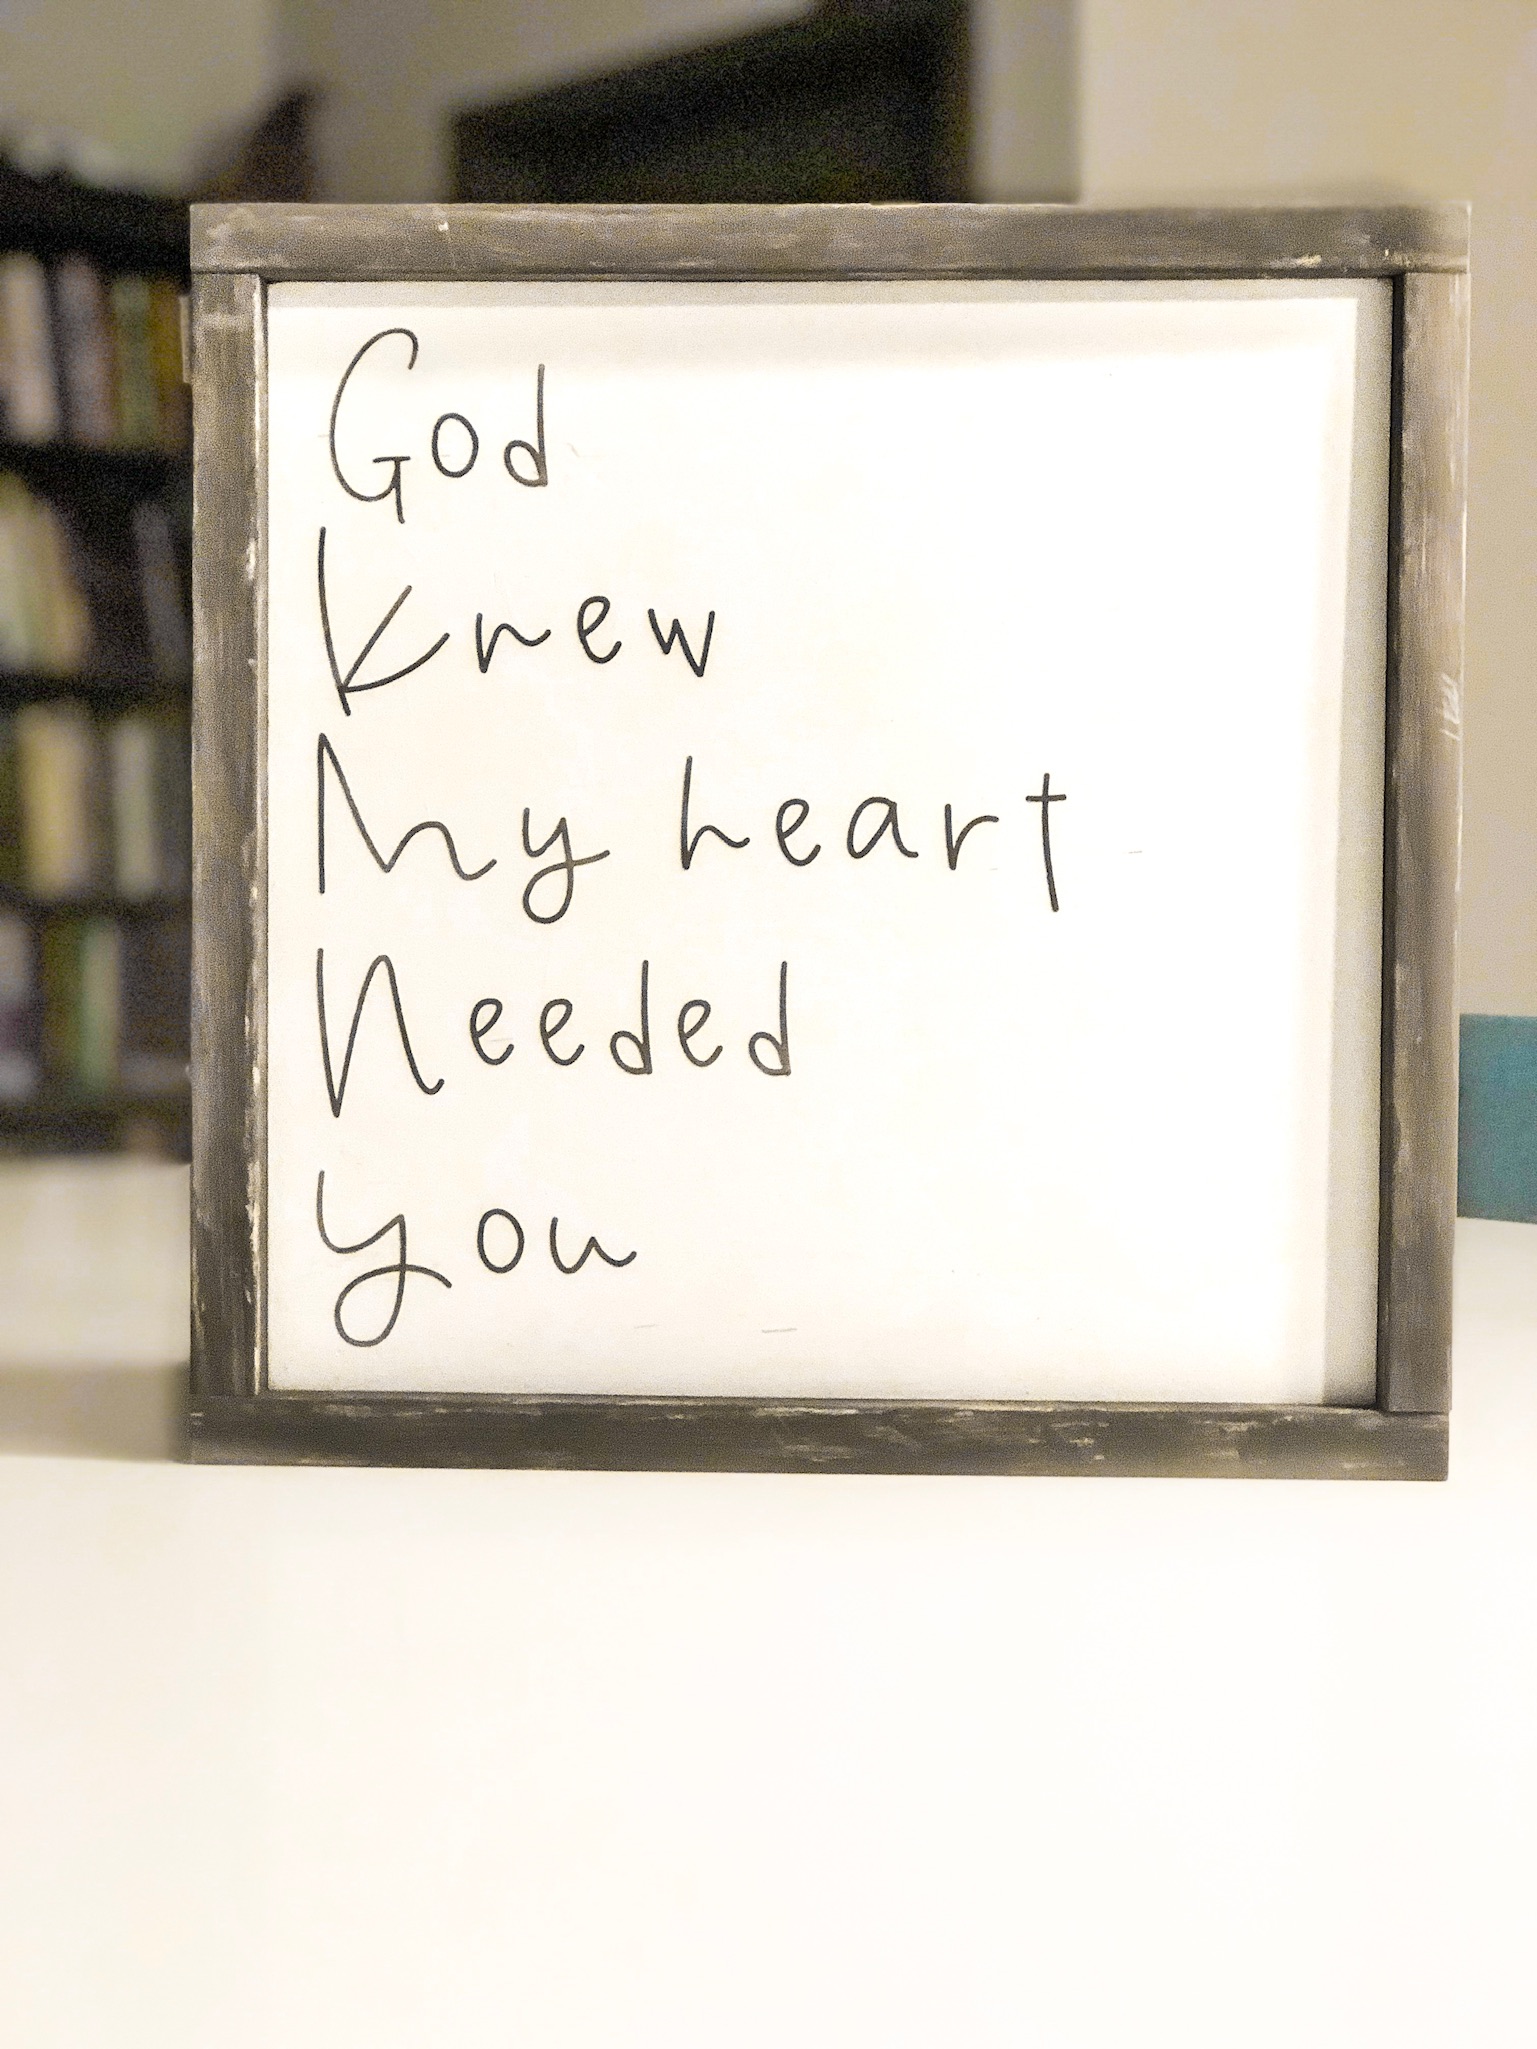 God
Knew
My heart
Needed
You